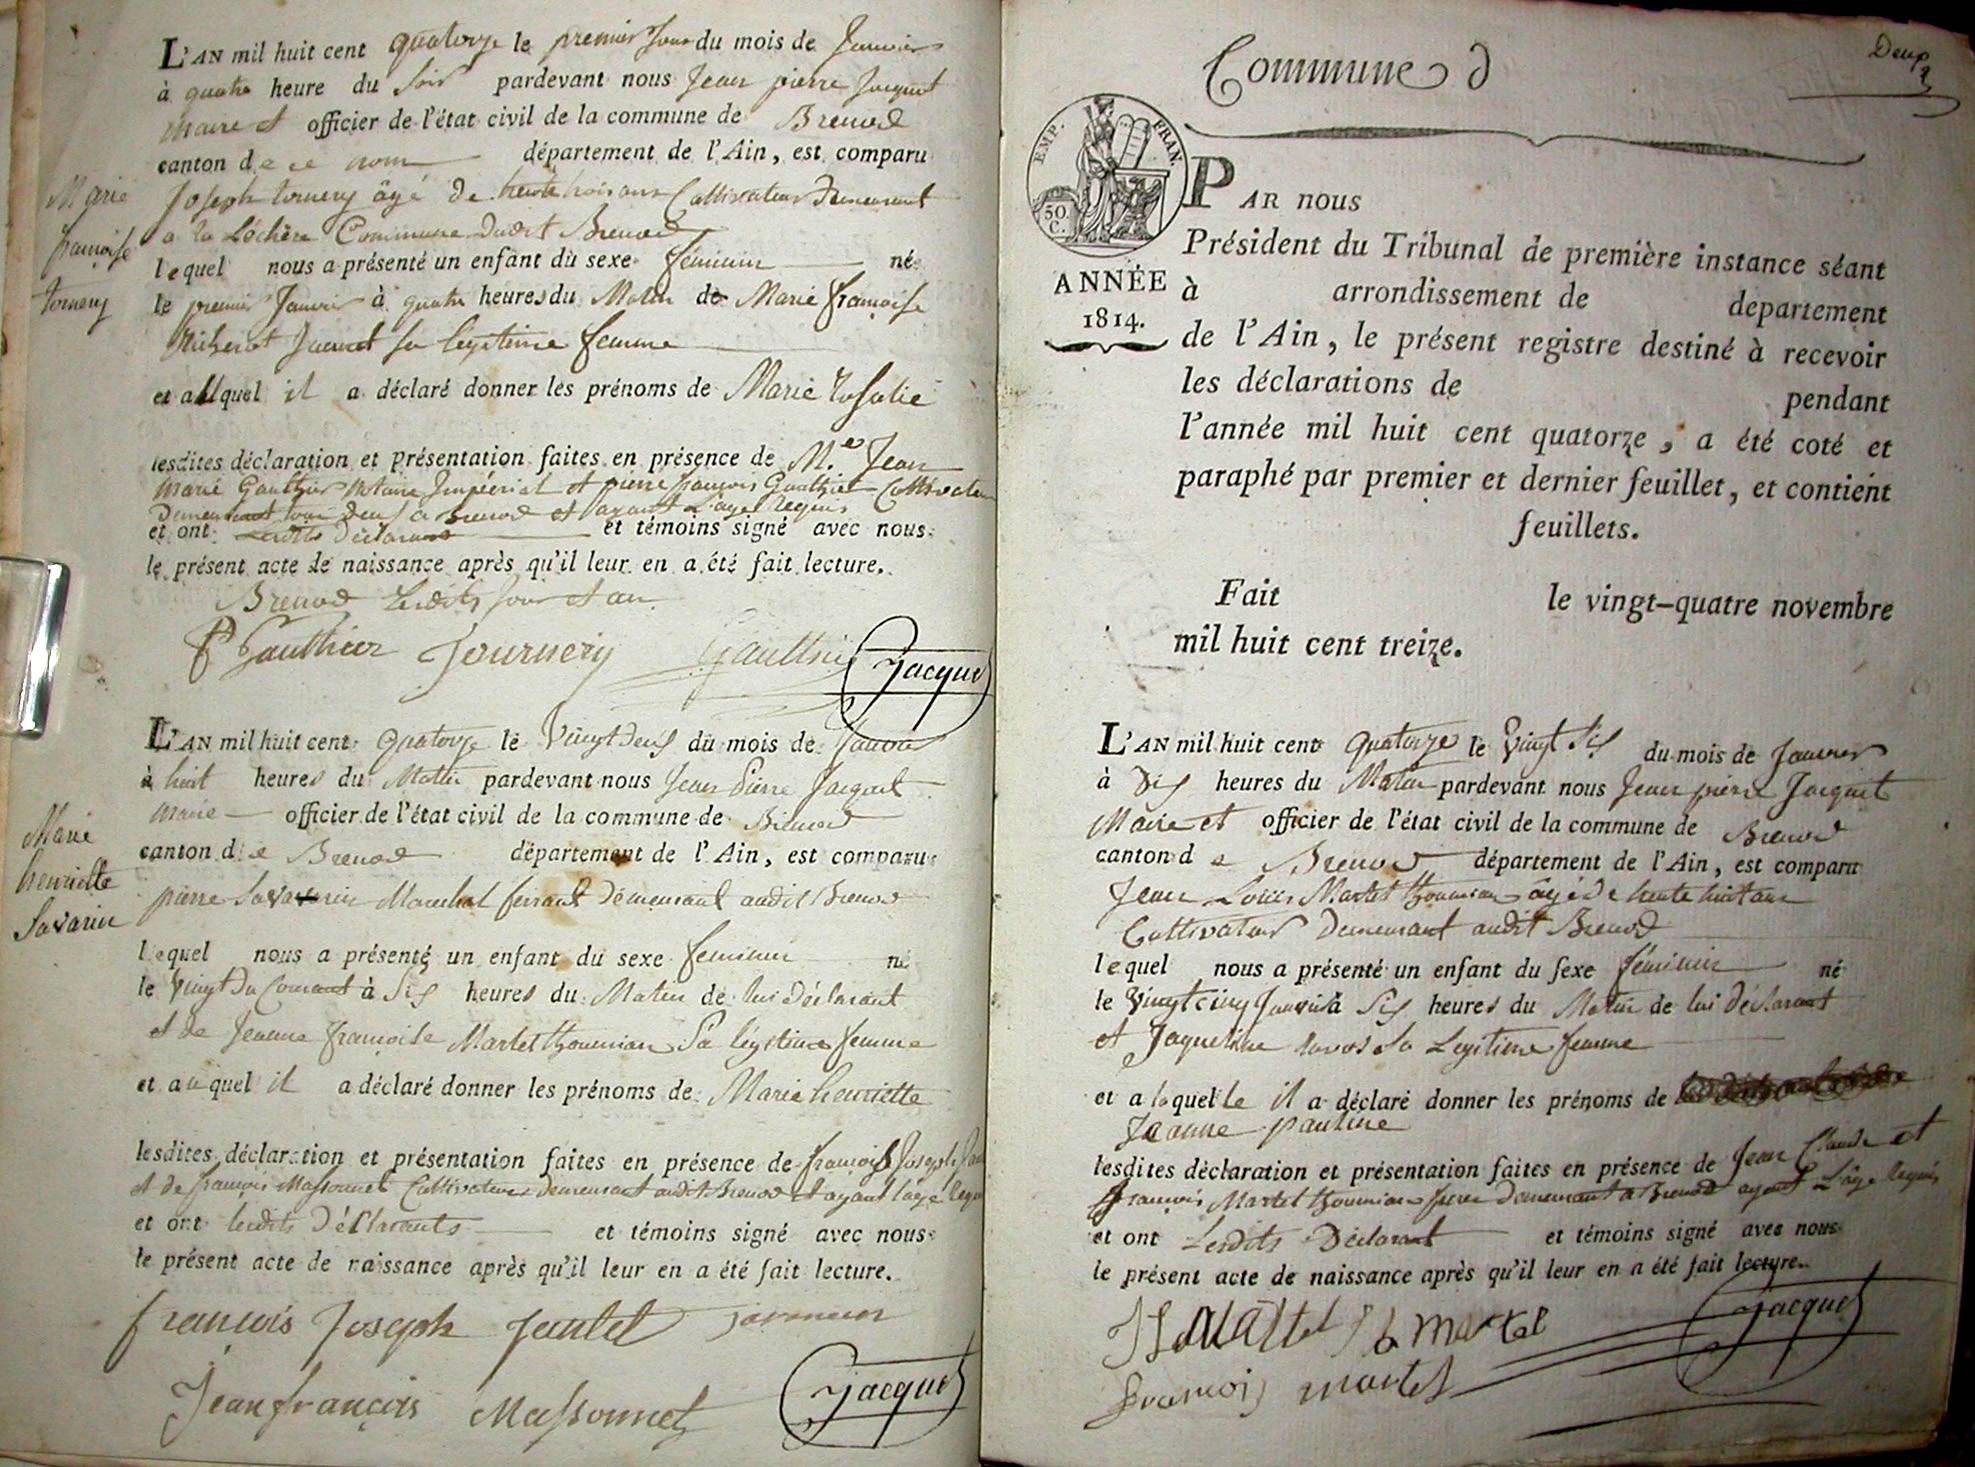 L'AN mil huit cent quatorze le premier jour du mois de Janvier
à quatre heure du Soir pardevant nous Jean pierre Jacquet
Maire et officier de l'état civil de la commune de Brenod
canton de ce nom département de l'Ain, est comparu
Joseph tornery âgé de trente trois ans Cultivateur Demeurant
a la Léchère Commune dudit Brenod
lequel nous a présenté un enfant du sexe féminin né
le premier Janvier à quatre heures du Matin de Marie françoise
Jacquet sa legitime femme
et auquel il a déclaré donner les prénoms de Marie Rosalie
lesdites déclaration et présentation faites en présence de M.e Jean
Marie Gauthier Notaire Impérial et pierre françois Gauthier Cultivateur
Demeurant tous deux à Brenod et ayant l'age requis
et ont lesdits Déclarant et témoins signé avec nous
le présent acte de naissance après qu'il leur en a été fait lecture.
Brenod Lesdits Jour et an
P Gauthier Tournery Gauthier Jacquet
Marie
françoise
tornery
L'AN mil huit cent quatorze le Vingt Deux du mois de Janvier
à huit heures du Matin pardevant nous Jean Pierre Jacquet
Maire officier de l'état civil de la commune de Brenod
canton de Brenod département de l'Ain, est comparu
pierre Savarin Marechal ferrant Demeurant audit Brenod
lequel nous a présenté un enfant du sexe feminin né
le Vingt Du Courant à Six heures du Matin de lui Déclarant
et de Jeanne françoise Martel thoumian Sa légitime femme
et auquel il a déclaré donner les prénoms de Marie henriette
lesdites déclaration et présentation faites en présence de françois Joseph
et de françois Massonnet Cultivateurs Demeurant audit Brenod et ayant l'age requis
et ont lesdits Déclarants et témoins signé avec nous
le présent acte de naissance après qu'il leur en a été fait lecture.
françois Joseph Jantet Savarin
Jean françois Massonnet Jacquet
Marie
henriette
Savarin
Commune d
Deux
EMP. FRAN.
50 C.
ANNÉE
1814.
PAR nous
Président du Tribunal de première instance séant
à arrondissement de departement
de l'Ain, le présent registre destiné à recevoir
les déclarations de pendant
l'année mil huit cent quatorze, a été coté et
paraphé par premier et dernier feuillet, et contient
feuillets.
Fait le vingt-quatre novembre
mil huit cent treize.
L'AN mil huit cent quatorze le Vingt Six du mois de Janvier
à Dix heures du Matin pardevant nous Jean pierre Jacquet
Maire et officier de l'état civil de la commune de Brenod
canton de Brenod département de l'Ain, est comparu
Jean Louis Martel thoumian âgé de trente huit ans
Cultivateur Demeurant audit Brenod
lequel nous a présenté un enfant du sexe féminin né
le Vingt cinq Janvier à Six heures du Matin de lui déclarant
et Jaqueline Savos Sa Legitime femme
et a laquelle il a déclaré donner les prénoms de
Jeanne pauline
lesdites déclaration et présentation faites en présence de Jean Claude et
françois Martel thoumian frere Demeurant a Brenod ayant L'âge requis
et ont Lesdits Déclarant et témoins signé avec nous
le présent acte de naissance après qu'il leur en a été fait lecture.
martel Jacquet
francois martel